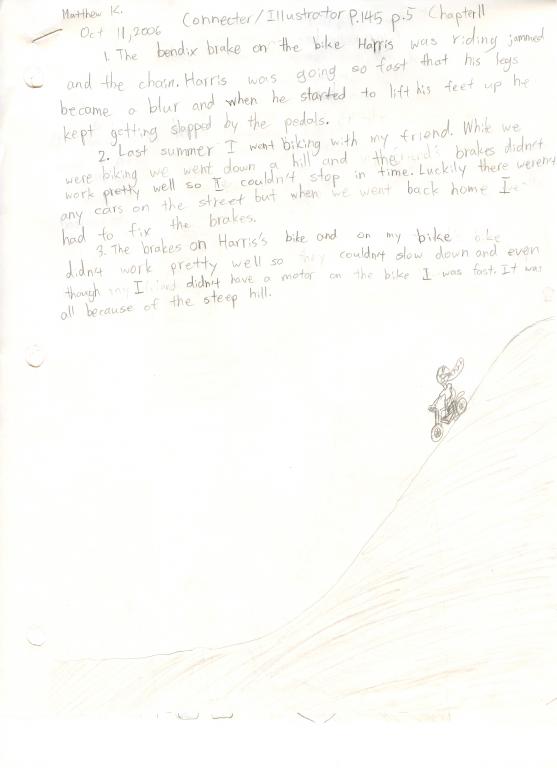 Matthew K.
Oct 11, 2006
Connecter/Illustrator P.145 p.5 Chapter 11
1. The bendix brake on the bike Harris was riding jammed
and the chain. Harris was going so fast that his legs
became a blur and when he started to lift his feet up he
kept getting slapped by the pedals.
2. Last summer I want biking with my friend. While we
were biking we went down a hill and the brakes didn't
work pretty well so I couldn't stop in time. Luckily there weren't
any cars on the street but when we went back home I
had to fix the brakes.
3. The brakes on Harris's bike and on my bike
didn't work pretty well so they couldn't slow down and even
though I didn't have a motor on the bike I was fast. It was
all because of the steep hill.